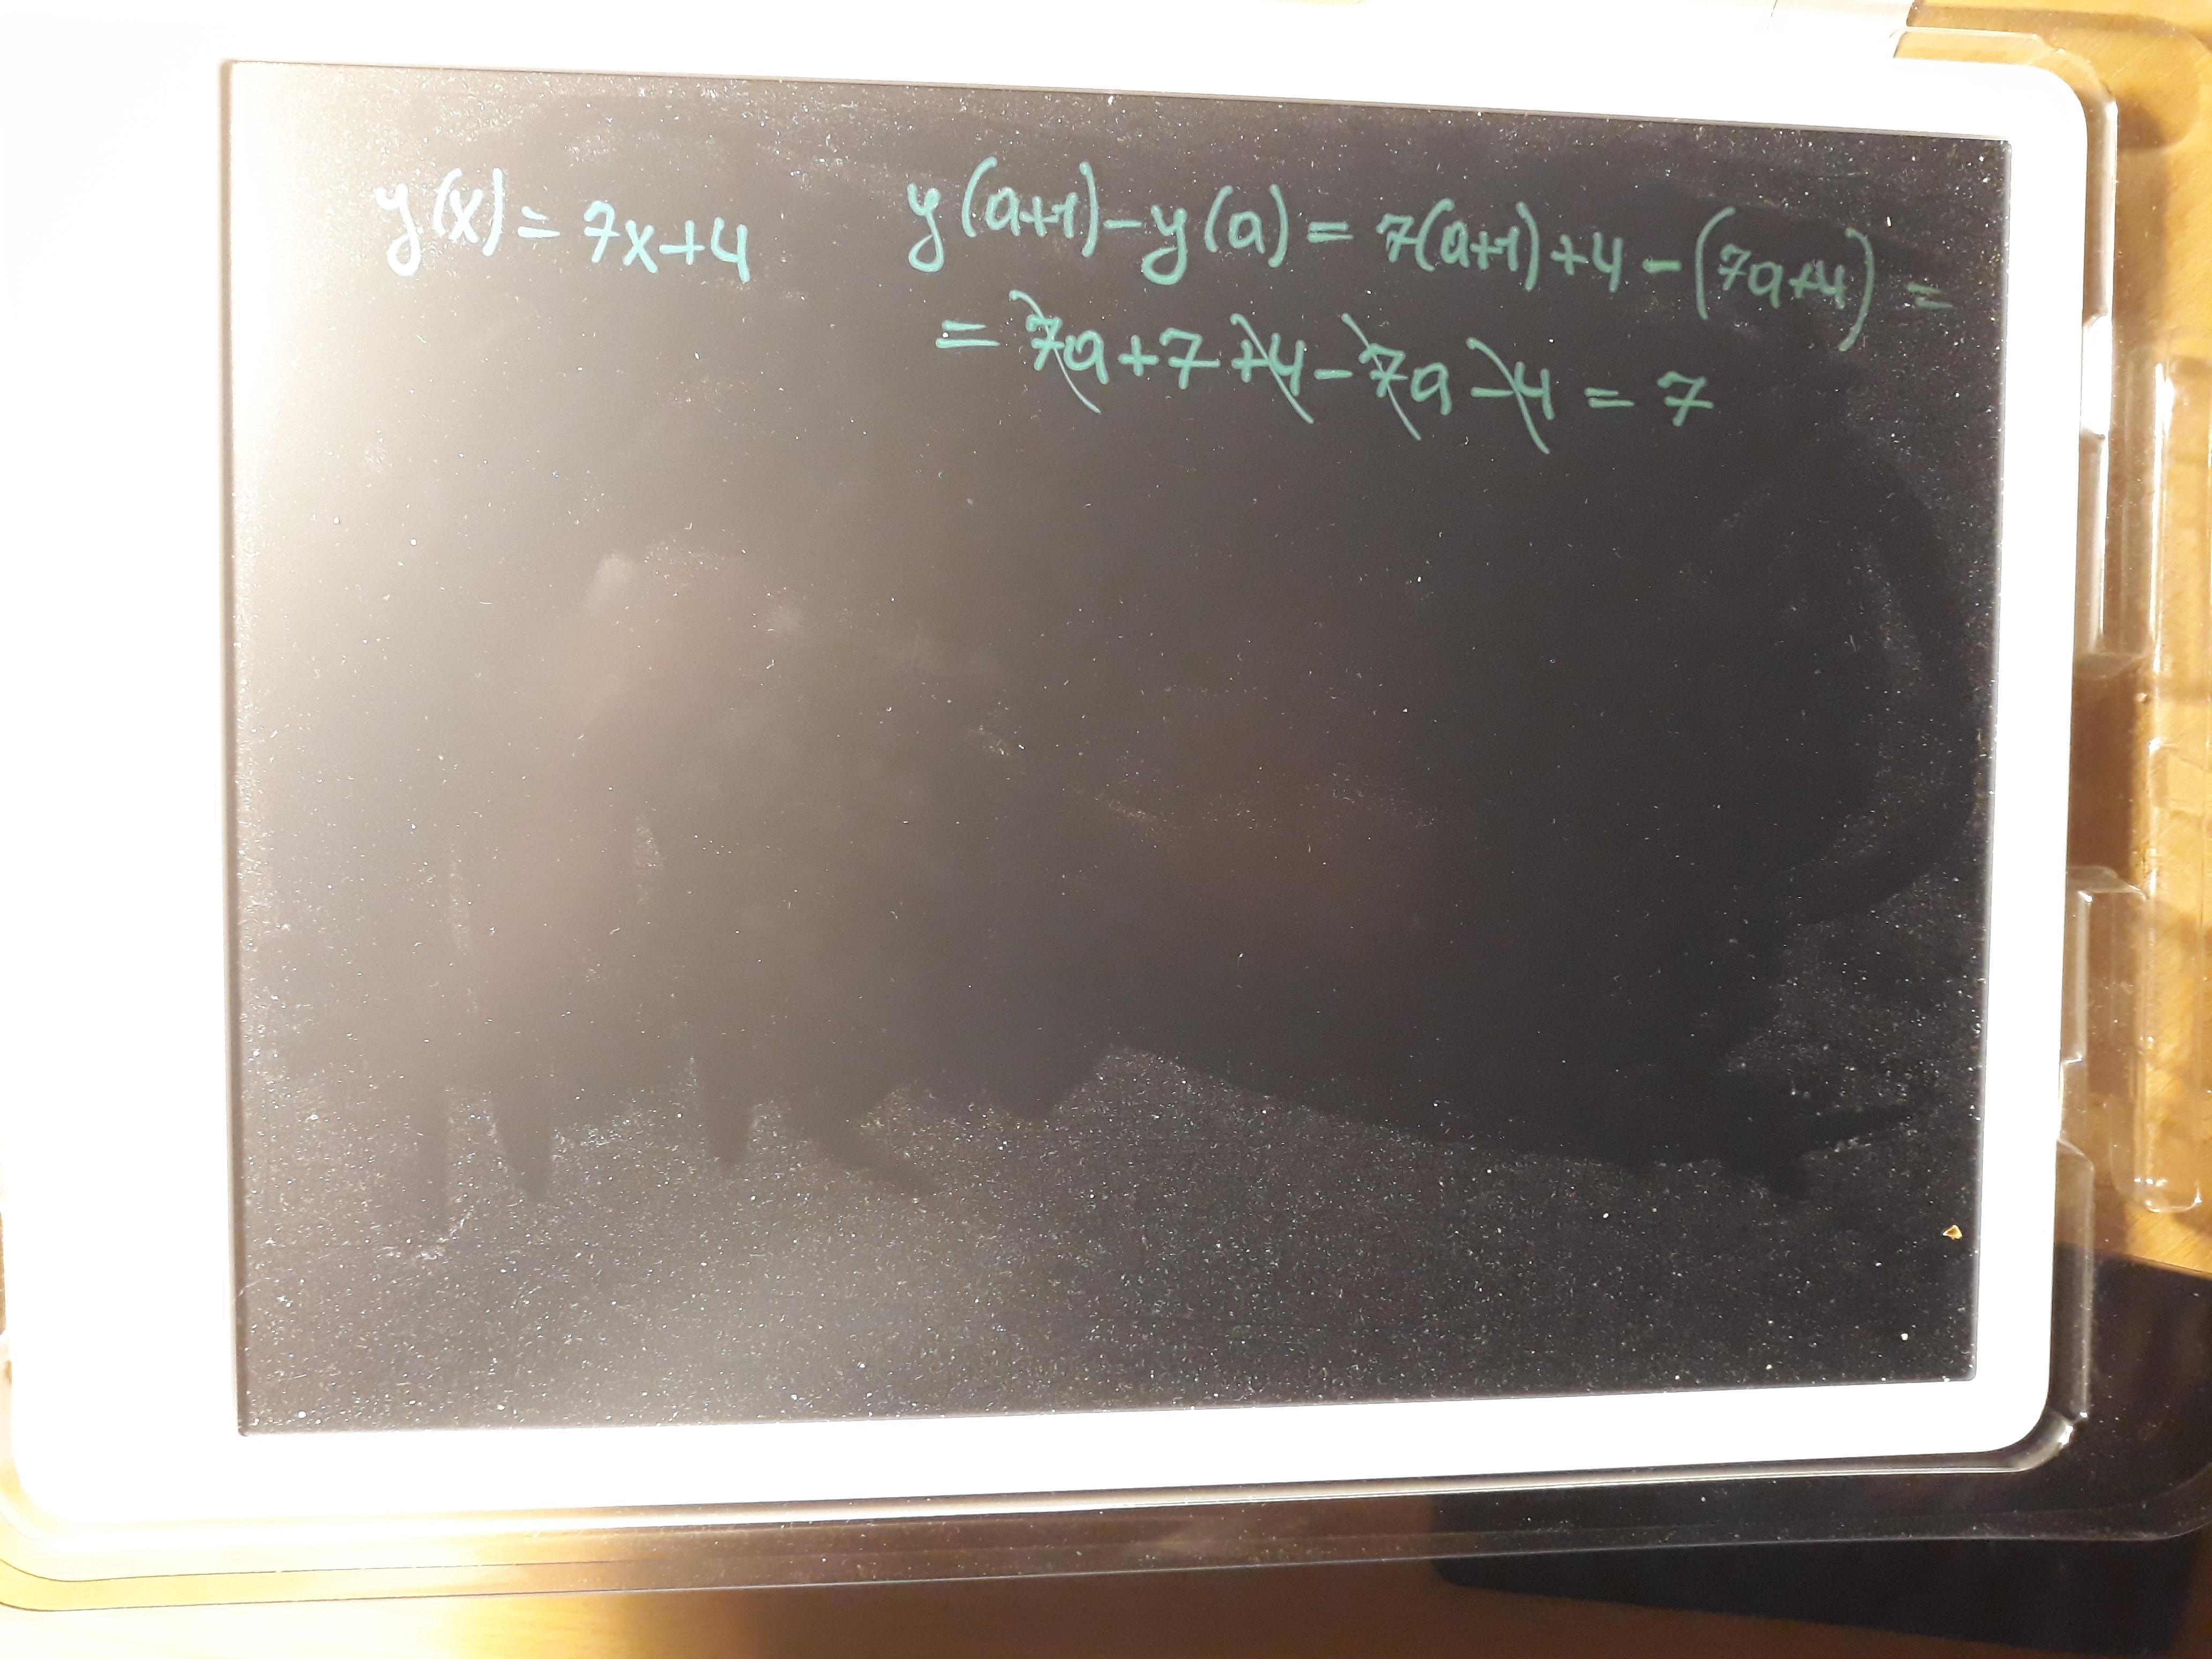 y(x) = 7x+4
y(a+1)-y(a) = 7(a+1)+4-(7a+4) =
= 7a+7+4-7a-4 = 7